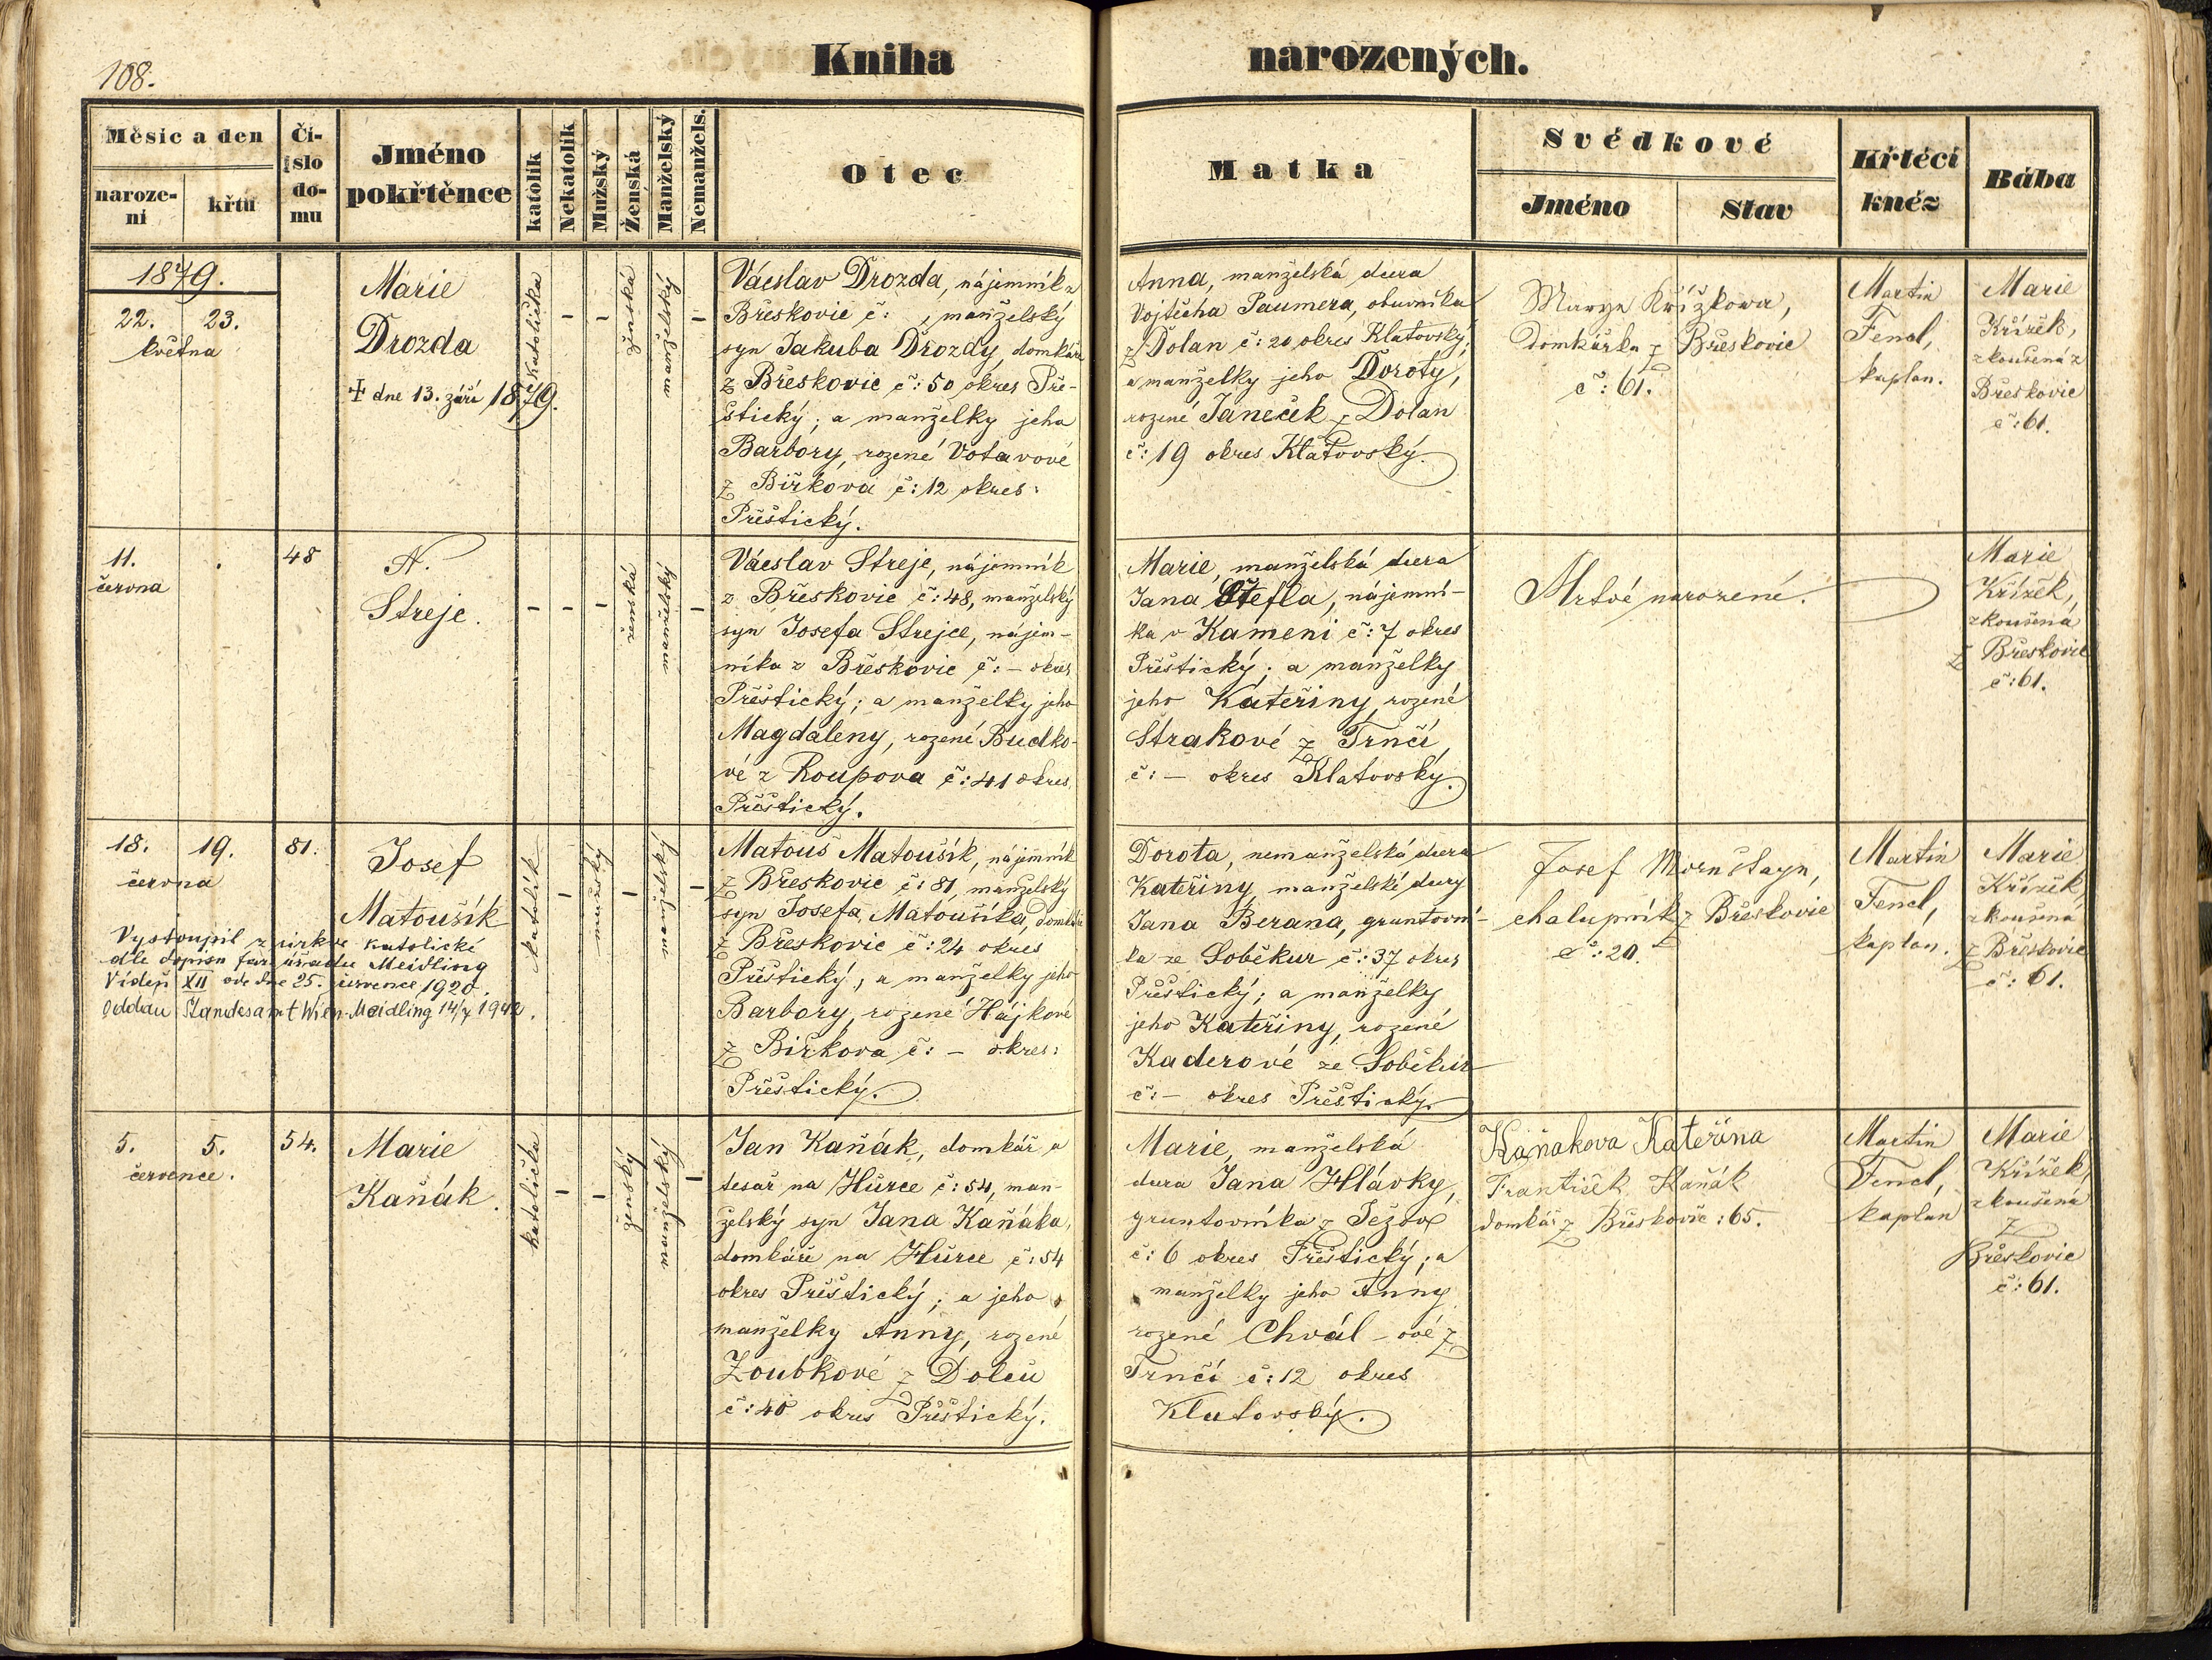 108.
Kniha narozených.
Měsíc a den
naroze-
ní
křtu
Čí-
slo
do-
mu
Jméno
pokřtěnce
katolík
Nekatolík
Mužský
Ženská
Manželský
Nemanžels.
Otec
Matka
Svědkové
Jméno
Stav
Křtěcí
kněz
Bába
1879.
22. 23.
května
Marie
Drozda
+ dne 13. září 1879.
Katolička
-
-
ženská
manželský
-
Václav Drozda, nájemník z
Břeskovic č: , manželský
syn Jakuba Drozdy, domkáře
z Břeskovic č: 50 okres Pře-
štický; a manželky jeho
Barbory, rozené Votavové
z Bířkova č: 12 okres:
Přeštický.
Anna, manželská dcera
Vojtěcha Paumera, obuvníka
z Dolan č: 20 okres Klatovský;
a manželky jeho Doroty,
rozené Janeček z Dolan
č: 19 okres Klatovský.
Marye Křížkowa,
Domkářka z Břeskovic
č: 61.
Martin
Fencl,
kaplan.
Marie
Křížek,
zkoušená z
Břeskovic
č: 61.
11. .
června
48
N.
Streje.
-
-
-
ženská
manželský
-
Václav Streje, nájemník
z Břeskovic č: 48, manželský
syn Josefa Strejce, nájem-
níka z Břeskovic č: - okres
Přeštický; a manželky jeho
Magdaleny, rozené Budko-
vé z Roupova č: 41 okres
Přeštický.
Marie, manželská dcera
Jana Štefla, nájemní-
ka v Kameni č: 7 okres
Přeštický; a manželky
jeho Kateřiny, rozené
Strakové z Trnčí,
č: - okres Klatovský.
Mrtvě narozené.
Marie
Křížek,
zkoušená
z Břeskovic
č: 61.
18. 19.
června
81.
Josef
Matoušík
Vystoupil z církve katolické
dle dopisu far. úřadu Meidling
Vídeň XII ode dne 25. července 1920.
Oddán Standesamt Wien-Meidling 14/7 1942.
Katolík
-
mužský
-
manželský
-
Matouš Matoušík, nájemník
z Břeskovic č: 81, manželský
syn Josefa Matoušíka, domkáře
z Břeskovic č: 24 okres
Přeštický, a manželky jeho
Barbory, rozené Hájkové
z Bířkova č: - okres:
Přeštický.
Dorota, nemanželská dcera
Kateřiny, manželské dcery
Jana Berana, gruntovní-
ka ze Soběkur č: 37 okres
Přeštický; a manželky
jeho Kateřiny, rozené
Kaderové ze Soběkur
č: - okres Přeštický.
Josef Mornštayn,
chalupník z Břeskovic
č: 20.
Martin
Fencl,
kaplan.
Marie
Křížek,
zkoušená
z Břeskovic
č: 61.
5. 5.
července.
54.
Marie
Kaňák.
katolička
-
-
ženský
manželský
-
Jan Kaňák, domkář a
tesař na Hůrce č: 54, man-
želský syn Jana Kaňáka,
domkáře na Hůrce č: 54
okres Přeštický; a jeho
manželky Anny, rozené
Zoubkové z Dolců
č: 40 okres Přeštický.
Marie, manželská
dcera Jana Hlávky,
gruntovníka z Ježov
č: 6 okres Přeštický; a
manželky jeho Anny
rozené Chvál-ové z
Trnčí č: 12 okres
Klatovský.
Kaňakova Kateřina
František Kaňák
domkář z Břeskovic č: 65.
Martin
Fencl,
kaplan
Marie
Křížek,
zkoušená
z
Břeskovic
č: 61.